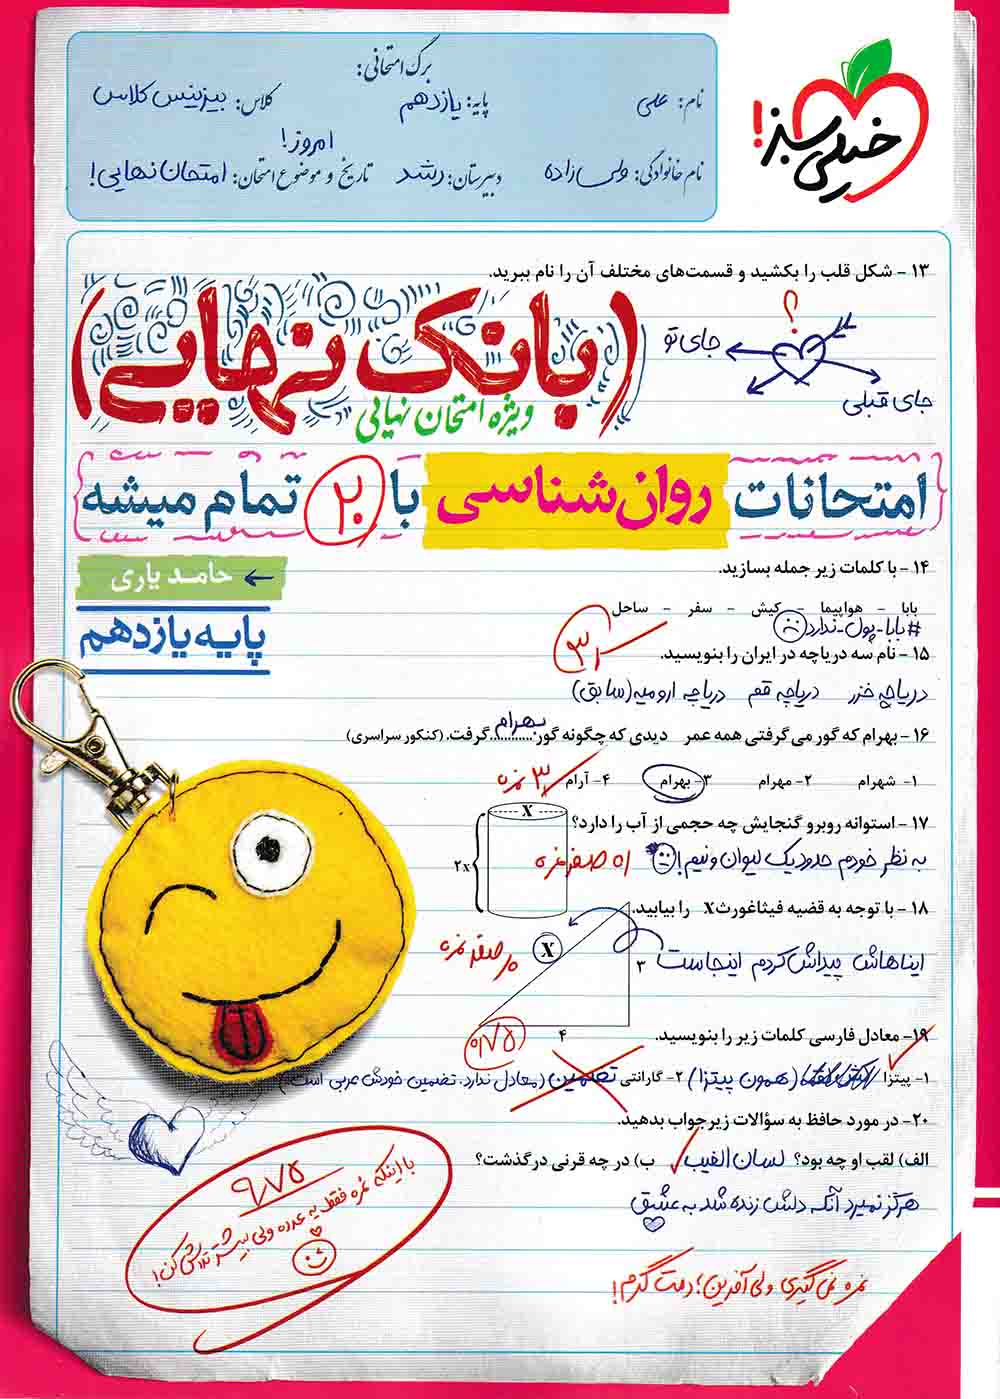 خیلی سبز!
برگ امتحانی:
نام: علی
پایه: یازدهم
کلاس: بیزینس کلاس
نام خانوادگی: ولی زاده
دبیرستان: رشد
تاریخ و موضوع امتحان: امتحان نهایی!
امروز!
۱۳ - شکل قلب را بکشید و قسمت‌های مختلف آن را نام ببرید.
؟
جای تو
جای قبلی
(بانک نهایی)
ویژه امتحان نهایی
امتحانات روان‌شناسی با ۲۰ تمام میشه
حامد یاری
پایه یازدهم
۱۴ - با کلمات زیر جمله بسازید.
بابا - هواپیما - کیش - سفر - ساحل
#بابا_پول_ندارد
۱۵ - نام سه دریاچه در ایران را بنویسید.
دریاچه خزر دریاچه قم دریاچه ارومیه (سابق)
۱۶ - بهرام که گور می‌گرفتی همه عمر دیدی که چگونه گور بهرام گرفت. (کنکور سراسری)
۱- شهرام ۲- مهرام ۳- بهرام ۴- آرام
۳ نمره
۱۷ - استوانه روبرو گنجایش چه حجمی از آب را دارد؟
X
2x
به نظر خودم حدود یک لیوان و نیم!
اه صفر نمره
۱۸ - با توجه به قضیه فیثاغورث X را بیابید.
X
۳
۴
ایناهاش پیداش کردم اینجاست
صفر نمره
۱۹- معادل فارسی کلمات زیر را بنویسید.
۰/۷۵
۱- پیتزا (همون پیتزا) ۲- گارانتی تضمین (معادل ندارد. تضمین خودش عربی است.)
۲۰- در مورد حافظ به سؤالات زیر جواب بدهید.
الف) لقب او چه بود؟ لسان الغیب ب) در چه قرنی درگذشت؟
هرگز نمیرد آنکه دلش زنده شد به عشق
۹/۷۵
با اینکه نمره فقط یه عدده ولی بیشتر تلاش کن!
نمره نمی‌گیری ولی آفرین؛ دمت گرم!